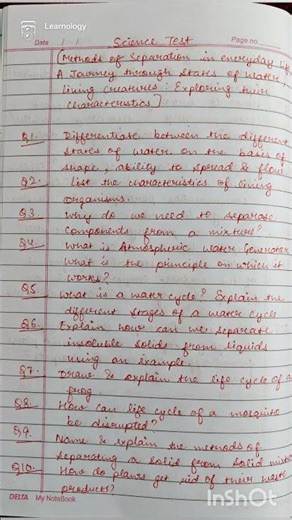 Learnology
Date / /
Page no.
Science Test
(Methods of Separation in everyday life
A Journey through States of Water,
Living creatures: Exploring their
Characteristics)
Q1. Differentiate between the different
states of water on the basis of
shape, ability to spread & flow.
Q2. List the characteristics of living
organisms.
Q3. Why do we need to separate
components from a mixture?
Q4. What is Atmospheric Water Generator
What is the principle on which it
works?
Q5 What is a water cycle? Explain the
different stages of a water cycle
Q6. Explain how can we separate
insoluble solids from liquids
using an example.
Q7. Draw & explain the life cycle of a
frog
Q8. How can life cycle of a mosquito
be disrupted?
Q9. Name & explain the methods of
separating a solid from solid
Q10. How do plants get rid of their waste
products?
DELTA My NoteBook
InShot